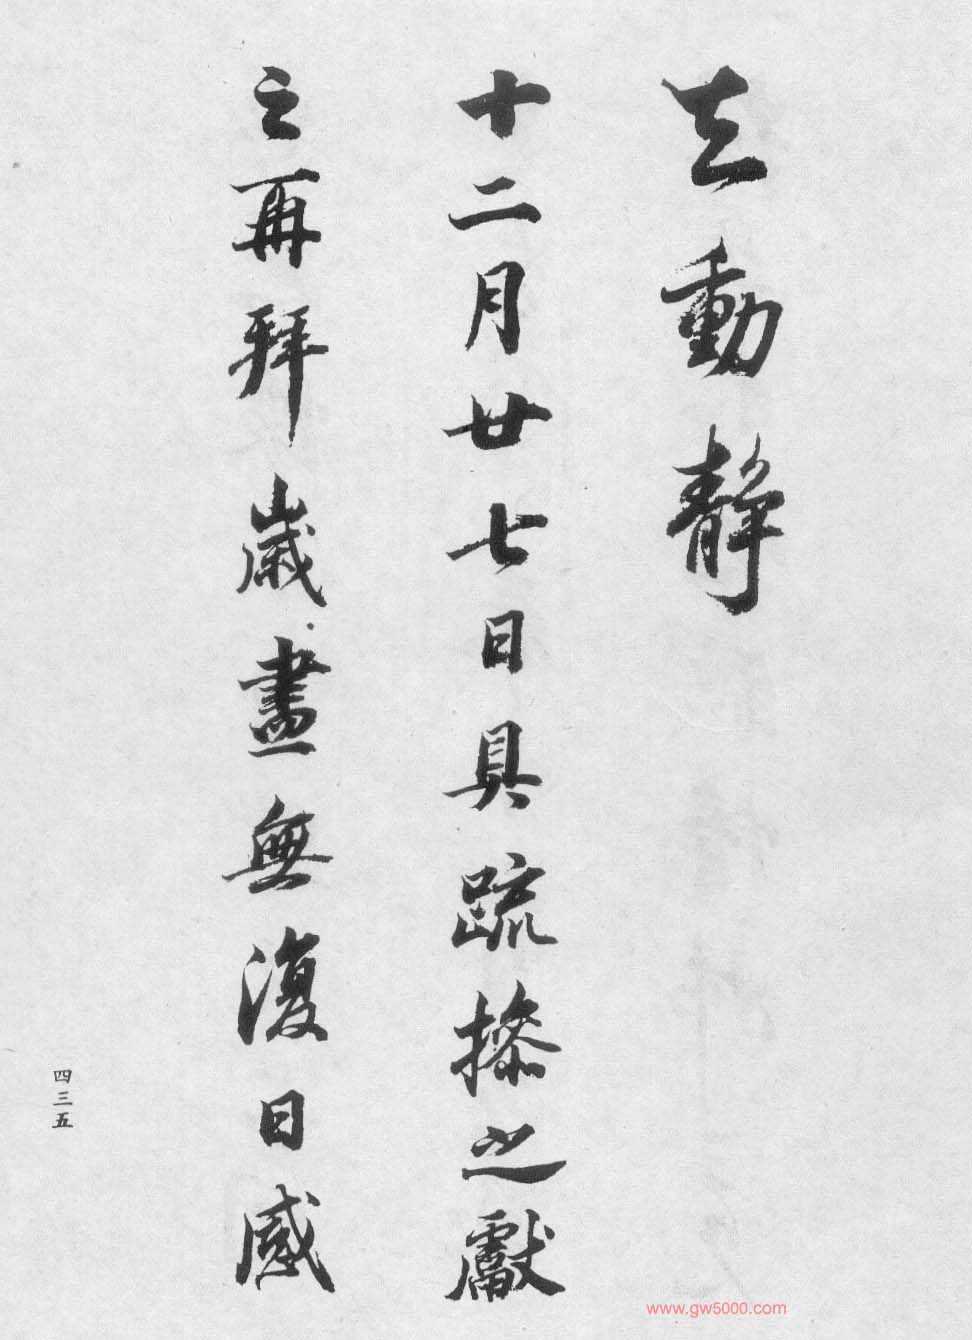 動靜
十二月廿七日具疏操之獻
之再拜歲盡無復日感
四三五
www.gw5000.com